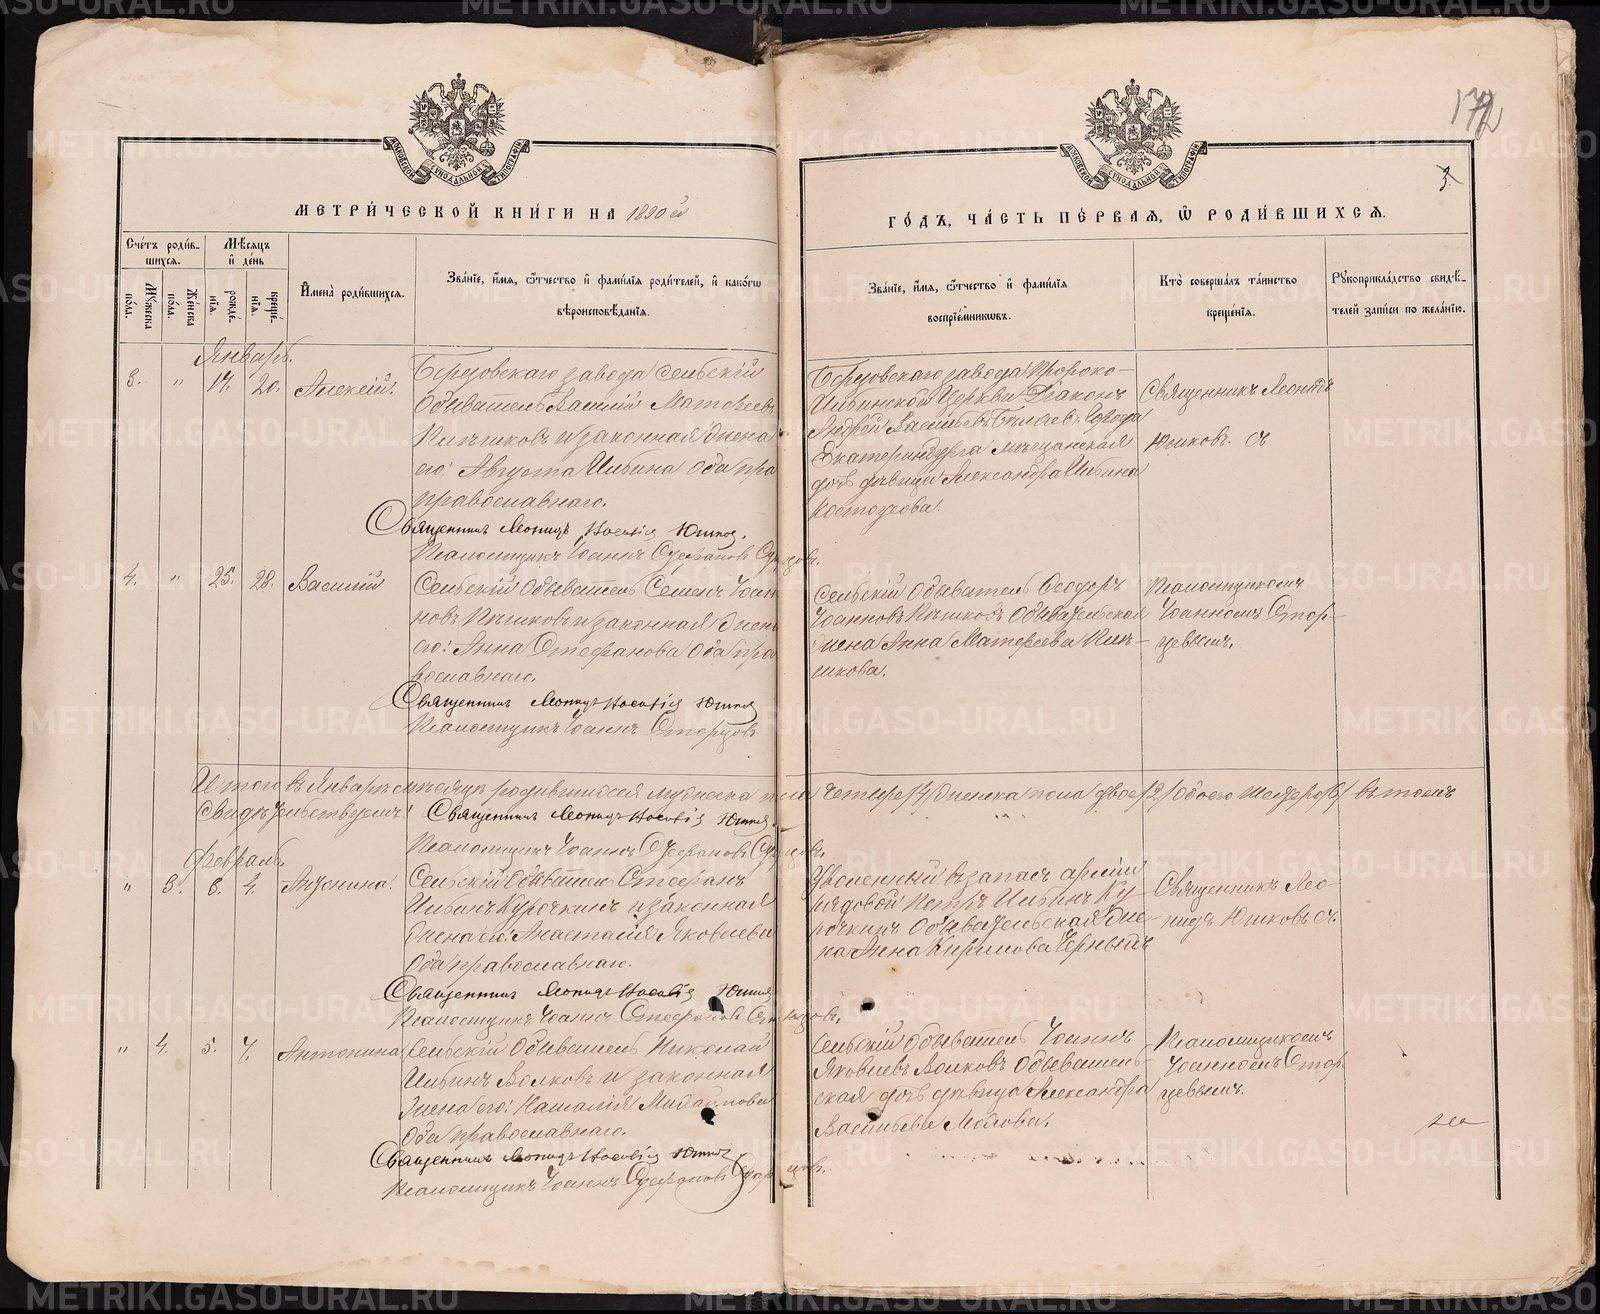 172
3.
МОСКОВСКОЙ СѴНОДАЛЬНОЙ ТИПОГРАФІИ
МОСКОВСКОЙ СѴНОДАЛЬНОЙ ТИПОГРАФІИ
МЕТРИ́ЧЕСКОЙ КНИ́ГИ НА 1890 й
ГО́ДЪ, ЧА́СТЬ ПЕ́РВАЯ, Ѽ РОДИ́ВШИХСЯ.
Сче́тъ роди́вшихся.
Мѣ́сяцъ и҆ де́нь
Мꙋ́жеска по́ла.
Же́нска по́ла.
рожде́нїѧ.
креще́нїѧ.
И҆мена̀ роди́вшихся.
Зва́нїе, и҆́мѧ, ѻ҆́тчество и҆ фами́лїѧ роди́телей, и҆ како́гѡ
вѣроисповѣ́данїѧ.
Зва́нїе, и҆́мѧ, ѻ҆́тчество и҆ фами́лїѧ
воспрїе́мникѡвъ.
Кто̀ соверша́лъ та́инство
креще́нїѧ.
Рꙋкоприкла́дство свидѣ́-
телей за́писи по жела́нїю.
Январь.
3. " 17. 20. Алексій.
Березовскаго завода сельскій
обыватель Василій Матвеевъ
и законная жена
его: Августа Ильина оба пра
православнаго.
Священникъ Леонидъ Юшков.
Псаломщикъ Іоаннъ Стефановъ Старцовъ.
Березовскаго завода Пророко-
Ильинской Церкви Діаконъ
Андрей Васильевъ Бѣляевъ, города
Екатеринбурга мѣщанская
дочь дѣвица Александра Ильина
Костоусова.
Священникъ Леонидъ
Юшковъ. съ
4. " 25. 28. Василій
Сельскій обыватель Семенъ Іоан
новъ и законная жена
его: Анна Стефанова оба пра
вославнаго.
Священникъ Леонидъ Юшков
Псаломщикъ Іоаннъ Старцовъ
Сельскій обыватель Ѳеодоръ
Іоанновъ обывательская
жена Анна Матвеева
шкова.
Псаломщикомъ
Іоанномъ Стар-
цевымъ.
Итого въ Январѣ мѣсяцѣ родившихся мужеска пола четыре /4/ женска пола двое /2/ обоего шестеро /6/ въ томъ
свидѣтельствуемъ: Священникъ Леонидъ Юшков.
Псаломщикъ Іоаннъ Стефановъ Старцовъ.
Февраль.
" 3. 3. 4. Антонина.
Сельскій обыватель Стефанъ
Ильинъ Курочкинъ и законная
жена его: Анастасія Яковлева
оба православнаго.
Священникъ Леонидъ Юшков
Псаломщикъ Іоаннъ Стефановъ Старцовъ.
Уволенный въ запасъ арміи
рядовой Петръ Ильинъ Ку
рочкинъ обывательская же-
на Анна Кирилова Черныхъ
Священникъ Лео-
нидъ Юшковъ съ.
" 4. 5. 7. Антонина
Сельскій обыватель Николай
Ильинъ Волковъ и законная
жена его: Наталія
оба православнаго.
Священникъ Леонидъ Юшков
Псаломщикъ Іоаннъ Стефановъ Старцовъ.
Сельскій обыватель Іоаннъ
Яковлевъ Волковъ обыватель-
ская дочь дѣвица Александра
Васильева
Псаломщикомъ
Іоанномъ Стар-
цевымъ.
METRIKI.GASO-URAL.RU